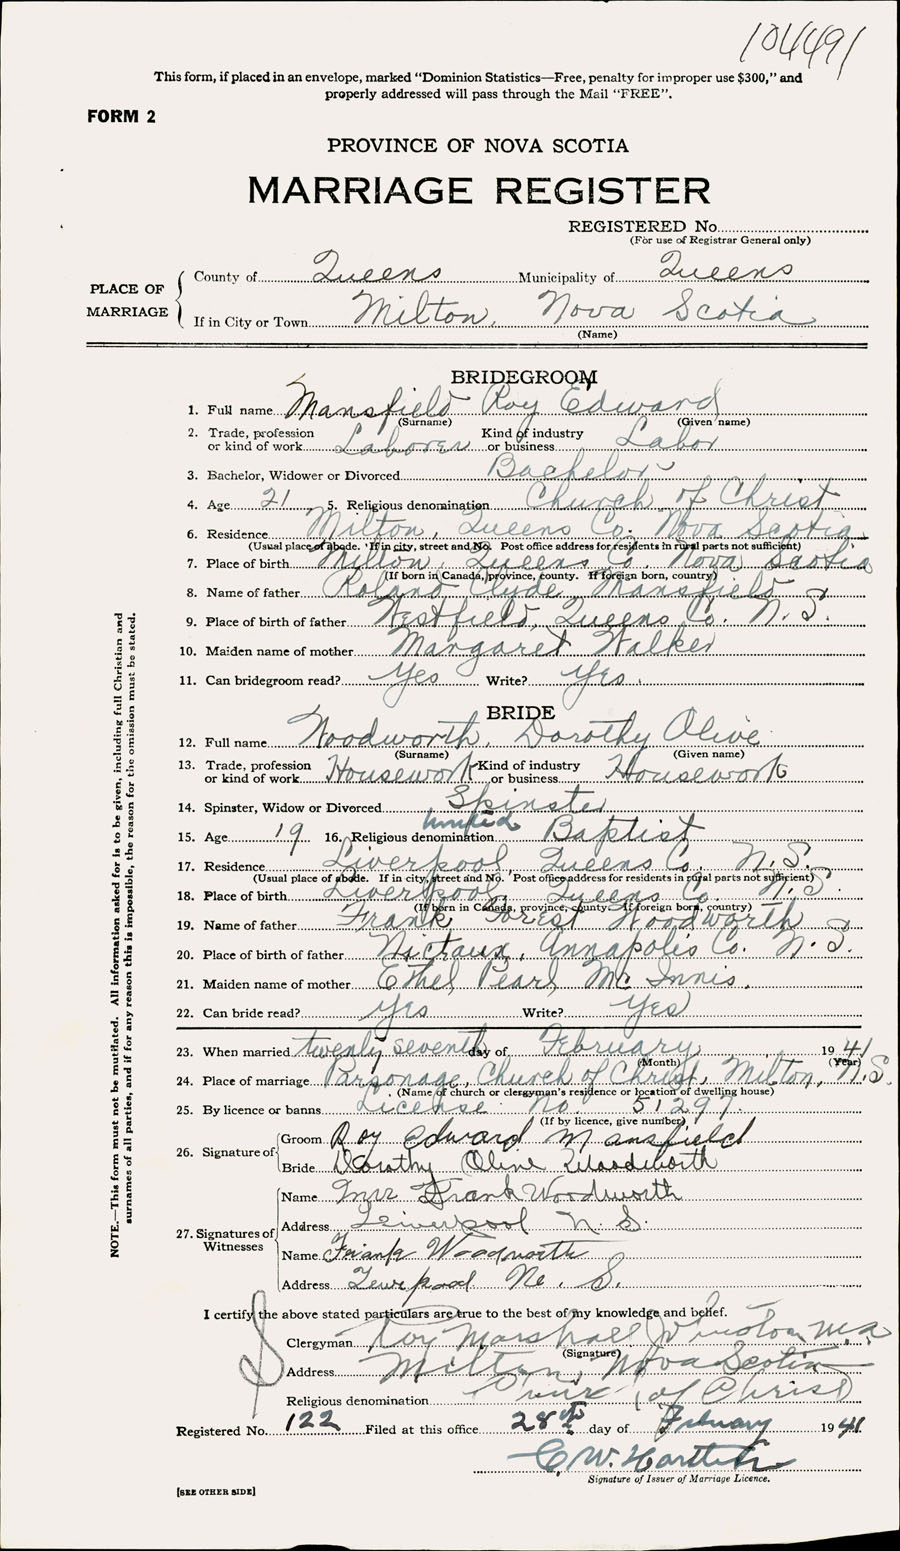 104491
This form, if placed in an envelope, marked “Dominion Statistics—Free, penalty for improper use $300,” and
properly addressed will pass through the Mail “FREE”.
FORM 2
PROVINCE OF NOVA SCOTIA
MARRIAGE REGISTER
REGISTERED No.
(For use of Registrar General only)
PLACE OF MARRIAGE
County of Queens Municipality of Queens
If in City or Town Milton, Nova Scotia
(Name)
BRIDEGROOM
1. Full name Mansfield Roy Edward
(Surname) (Given name)
2. Trade, profession or kind of work Laborer Kind of industry or business Labor
3. Bachelor, Widower or Divorced Bachelor
4. Age 21 5. Religious denomination Church of Christ
6. Residence Milton, Queens Co. Nova Scotia
(Usual place of abode. If in city, street and No. Post office address for residents in rural parts not sufficient)
7. Place of birth Milton, Queens Co. Nova Scotia
(If born in Canada, province, county. If foreign born, country)
8. Name of father Roland Clyde Mansfield
9. Place of birth of father Westfield, Queens Co. N.S.
10. Maiden name of mother Margaret Walker
11. Can bridegroom read? Yes Write? Yes
BRIDE
12. Full name Woodworth, Dorothy Olive
(Surname) (Given name)
13. Trade, profession or kind of work Housework Kind of industry or business Housework
14. Spinster, Widow or Divorced Spinster
United
15. Age 19 16. Religious denomination Baptist
17. Residence Liverpool, Queens Co. N.S.
(Usual place of abode. If in city, street and No. Post office address for residents in rural parts not sufficient)
18. Place of birth Liverpool Queens Co. N.S.
(If born in Canada, province, county. If foreign born, country)
19. Name of father Frank Forest Woodworth
20. Place of birth of father Nictaux, Annapolis Co. N.S.
21. Maiden name of mother Ethel Pearl McInnis.
22. Can bride read? Yes Write? Yes
23. When married twenty seventh day of February 1941
(Month) (Year)
24. Place of marriage Parsonage, Church of Christ, Milton, N.S.
(Name of church or clergyman's residence or location of dwelling house)
25. By licence or banns License No. 51297.
(If by licence, give number)
26. Signature of
Groom Roy Edward Mansfield
Bride Dorothy Olive Woodworth
27. Signatures of Witnesses
Name Mrs Frank Woodworth
Address Liverpool N.S.
Name Frank Woodworth
Address Liverpool N. S.
I certify the above stated particulars are true to the best of my knowledge and belief.
Clergyman Roy Marshall M.A.
(Signature)
Address Milton, Nova Scotia
Religious denomination (of Christ)
Registered No. 122 Filed at this office 28th day of February 1941
C.W.
Signature of Issuer of Marriage Licence.
[SEE OTHER SIDE]
NOTE.—This form must not be mutilated. All information asked for is to be given, including full Christian and
surnames of all parties, and if for any reason this is impossible, the reason for the omission must be stated.